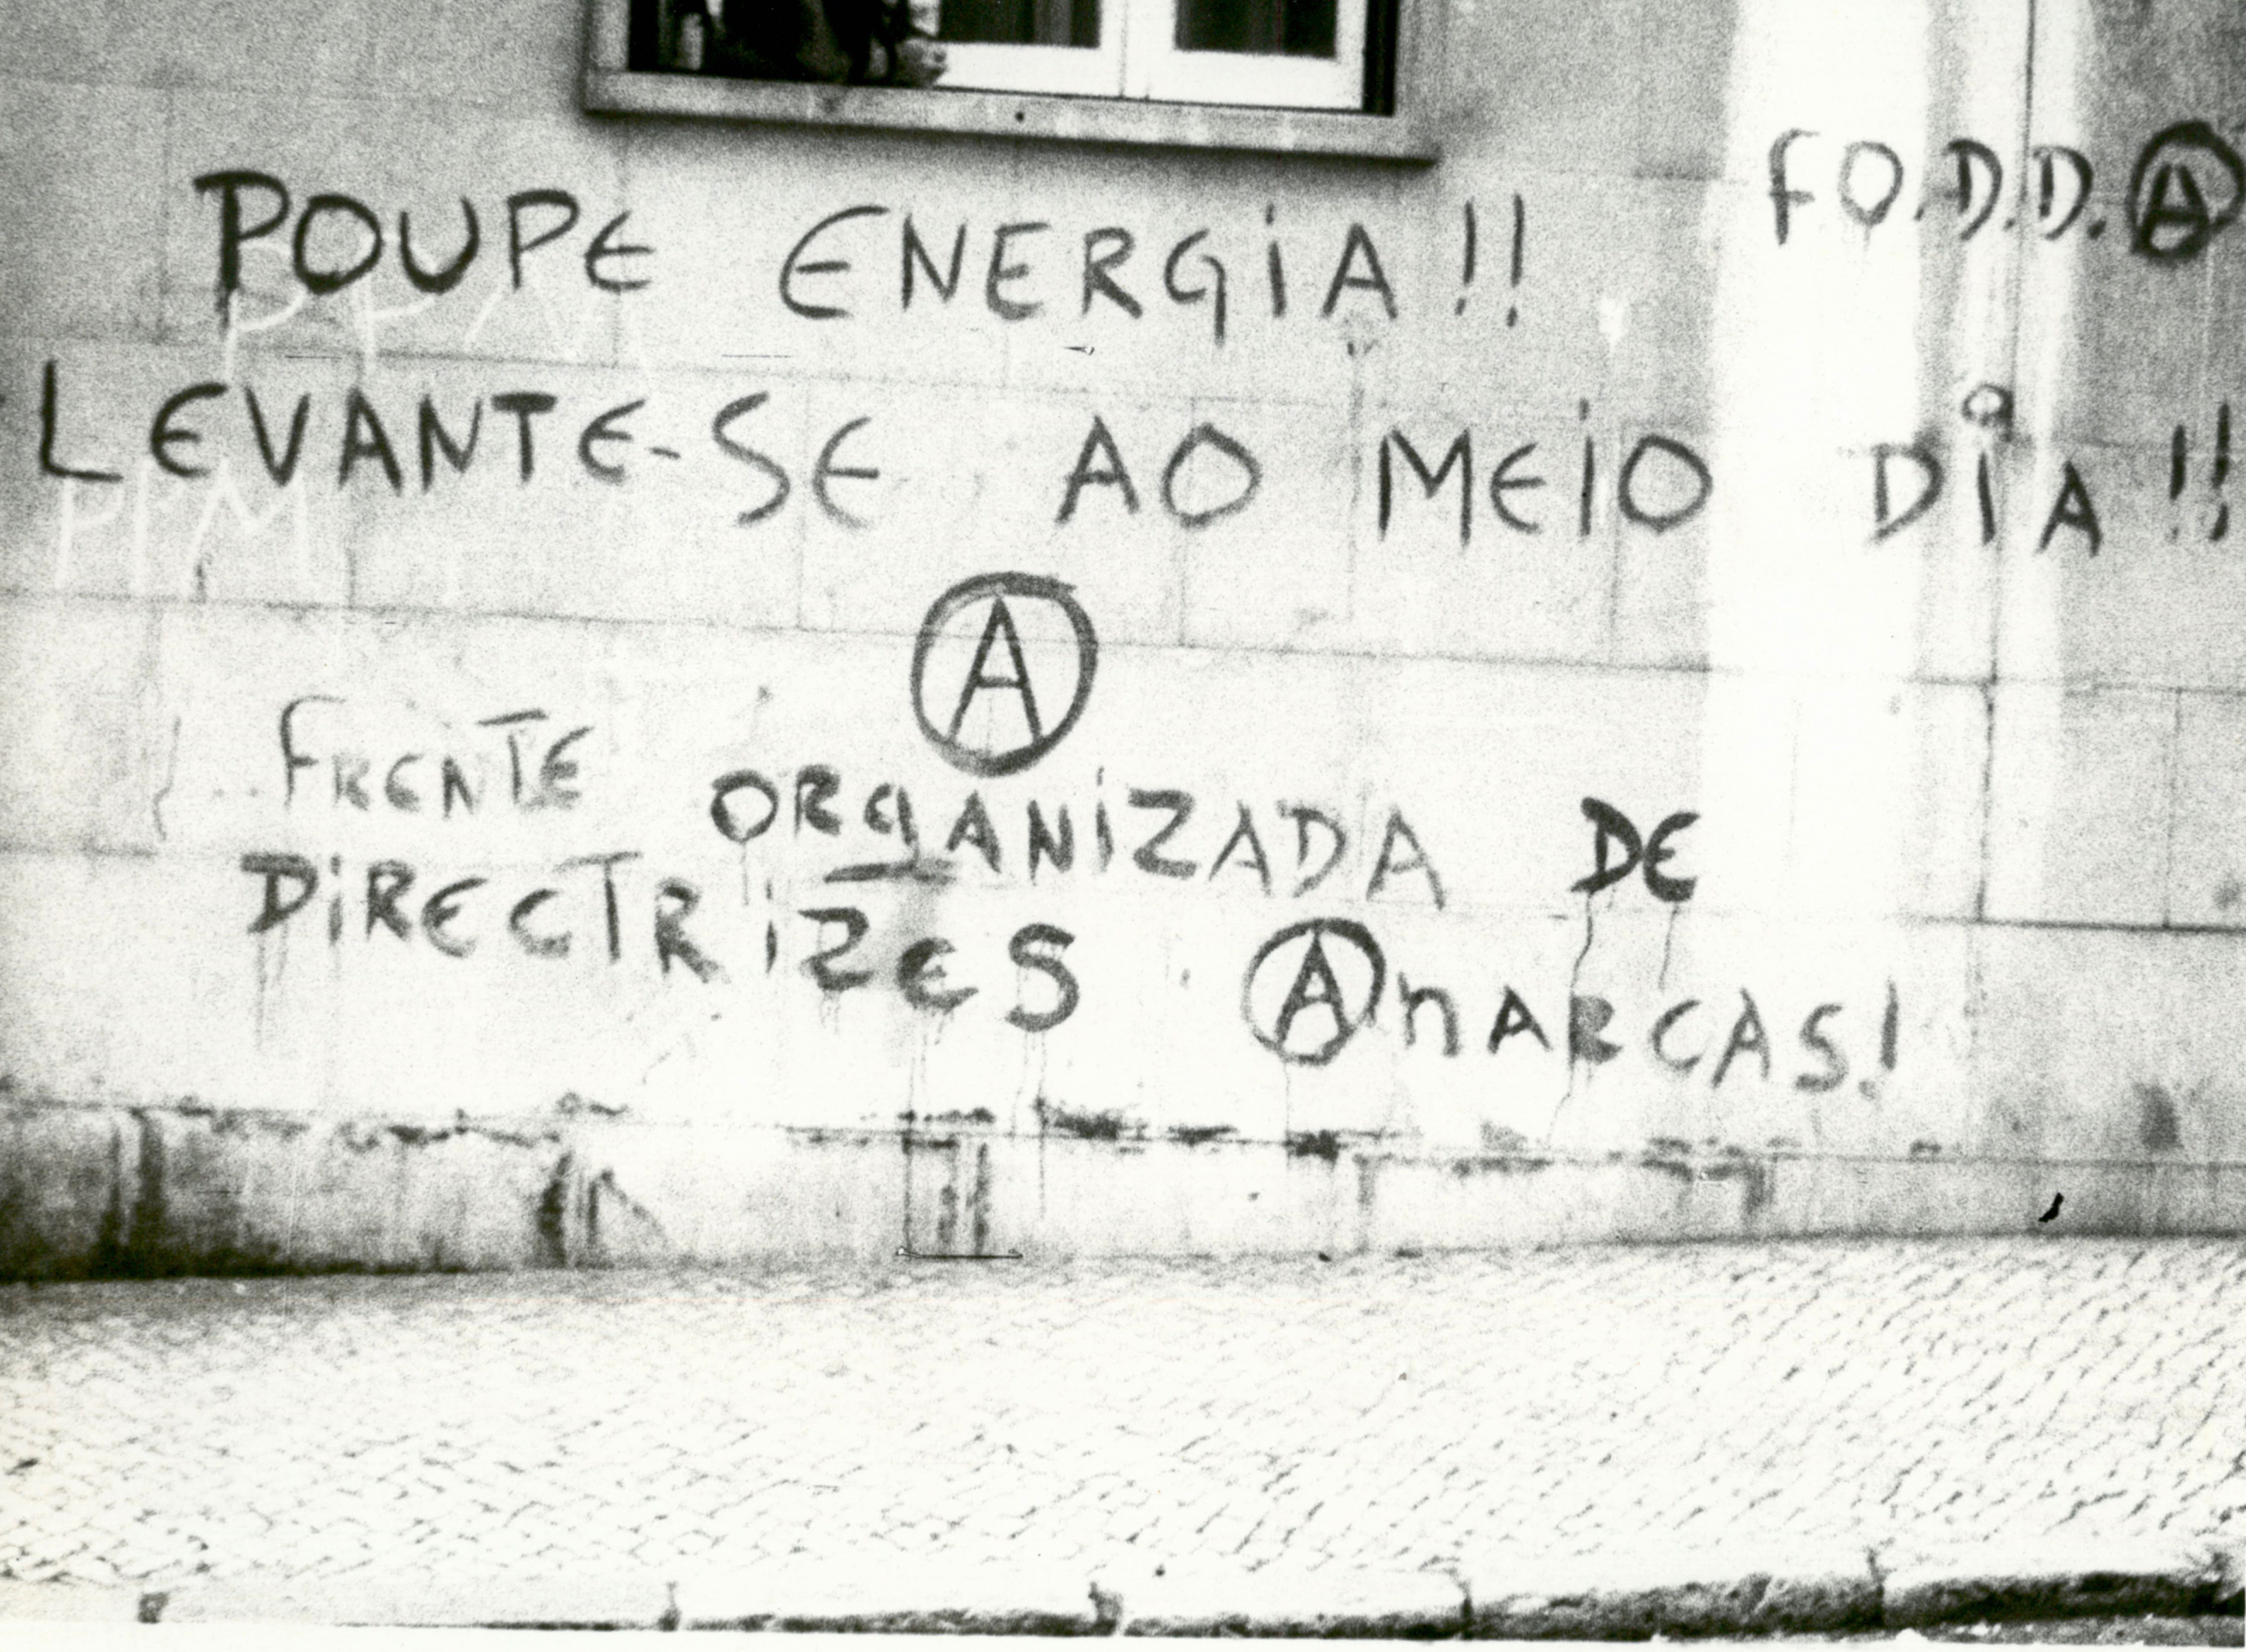 POUPE ENERGiA!!
F.O.D.D.A
LEVANTE-SE AO MEiO DiA!!
PPM
A
FRENTE ORGANiZADA DE
DiRECTRiZES AnARCAS!